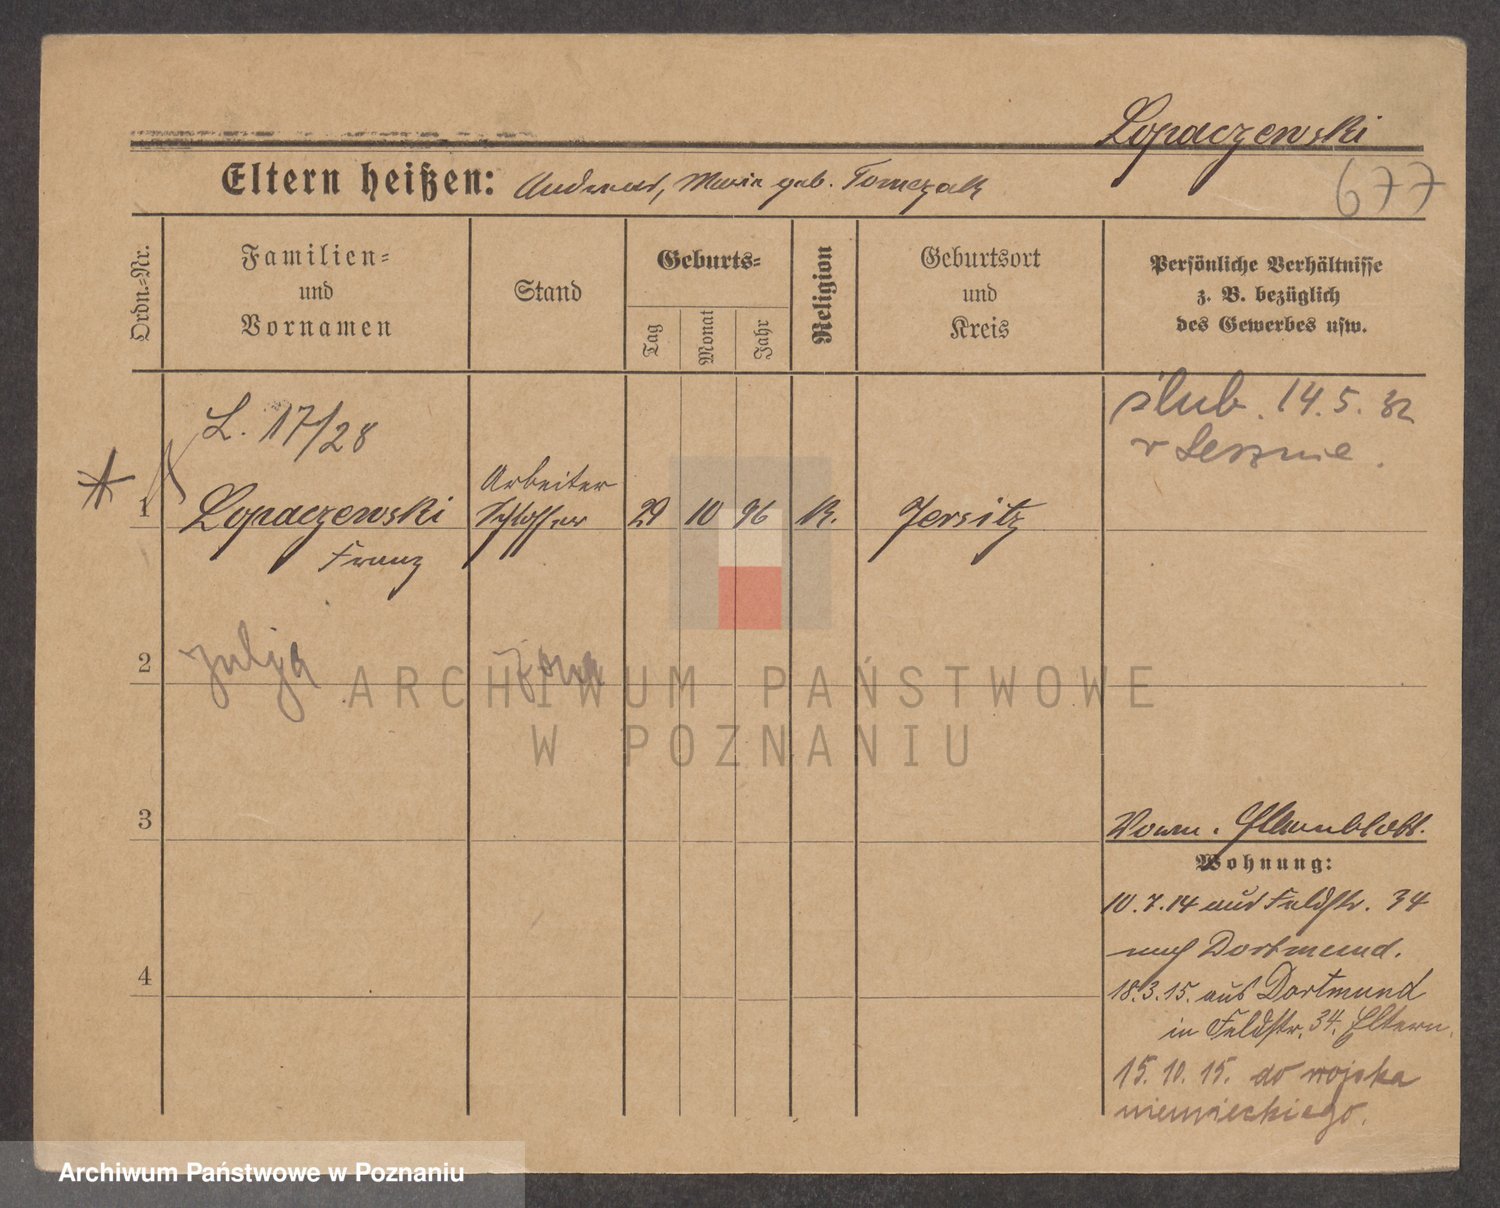 Lopaczewski
Eltern heißen: Andreas, Maria geb. Tomczak
677
Ordn.-Nr.
Familien-
und
Vornamen
Stand
Geburts-
Tag
Monat
Jahr
Religion
Geburtsort
und
Kreis
Persönliche Verhältnisse
z. B. bezüglich
des Gewerbes usw.
L. 17/28
ślub. 14.5.32
w Lesznie.
Arbeiter
1 Lopaczewski Schlosser 29 10 96 K. Jersitz
Franz
2 Julja żona
3
Vorm.
Wohnung:
10.7.14 aus Feldstr. 34
nach Dortmund.
4
18.3.15. aus Dortmund
in Feldstr. 34. Eltern.
15.10.15. do wojska
niemieckiego.
ARCHIWUM PAŃSTWOWE
W POZNANIU
Archiwum Państwowe w Poznaniu